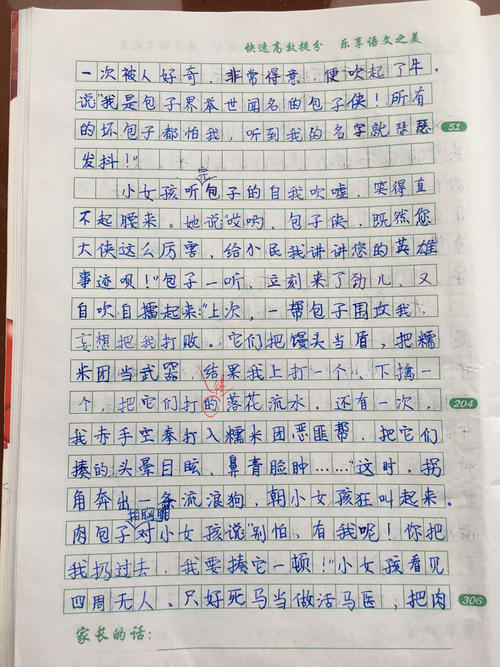 快速高效提分 乐享语文之美
一次被人好奇，非常得意，便吹起了牛，
说"我是包子界举世闻名的包子侠！所有
的坏包子都怕我，听到我的名字就瑟瑟
51
发抖！"
完
小女孩听包子的自我吹嘘，笑得直
不起腰来。她说"哎哟，包子侠，既然您
大侠这么厉害，给小民我讲讲您的英雄
事迹呗！"包子一听，立刻来了劲儿，又
自吹自擂起来："上次，一帮包子围攻我，
妄想把我打败。它们把馒头当盾，把糯
米团当武器，结果我上打一个、下擒一
得
个，把它们打的落花流水。还有一次，
204
我赤手空拳打入糯米团恶匪帮，把它们
揍的头晕目眩，鼻青脸肿……"这时，拐
角奔出一条流浪狗，朝小女孩狂叫起来。
肉包子对小女孩说"别怕，有我呢！你把
我扔过去，我要揍它一顿！"小女孩看见
四周无人，只好死马当做活马医，把肉
306
家长的话：